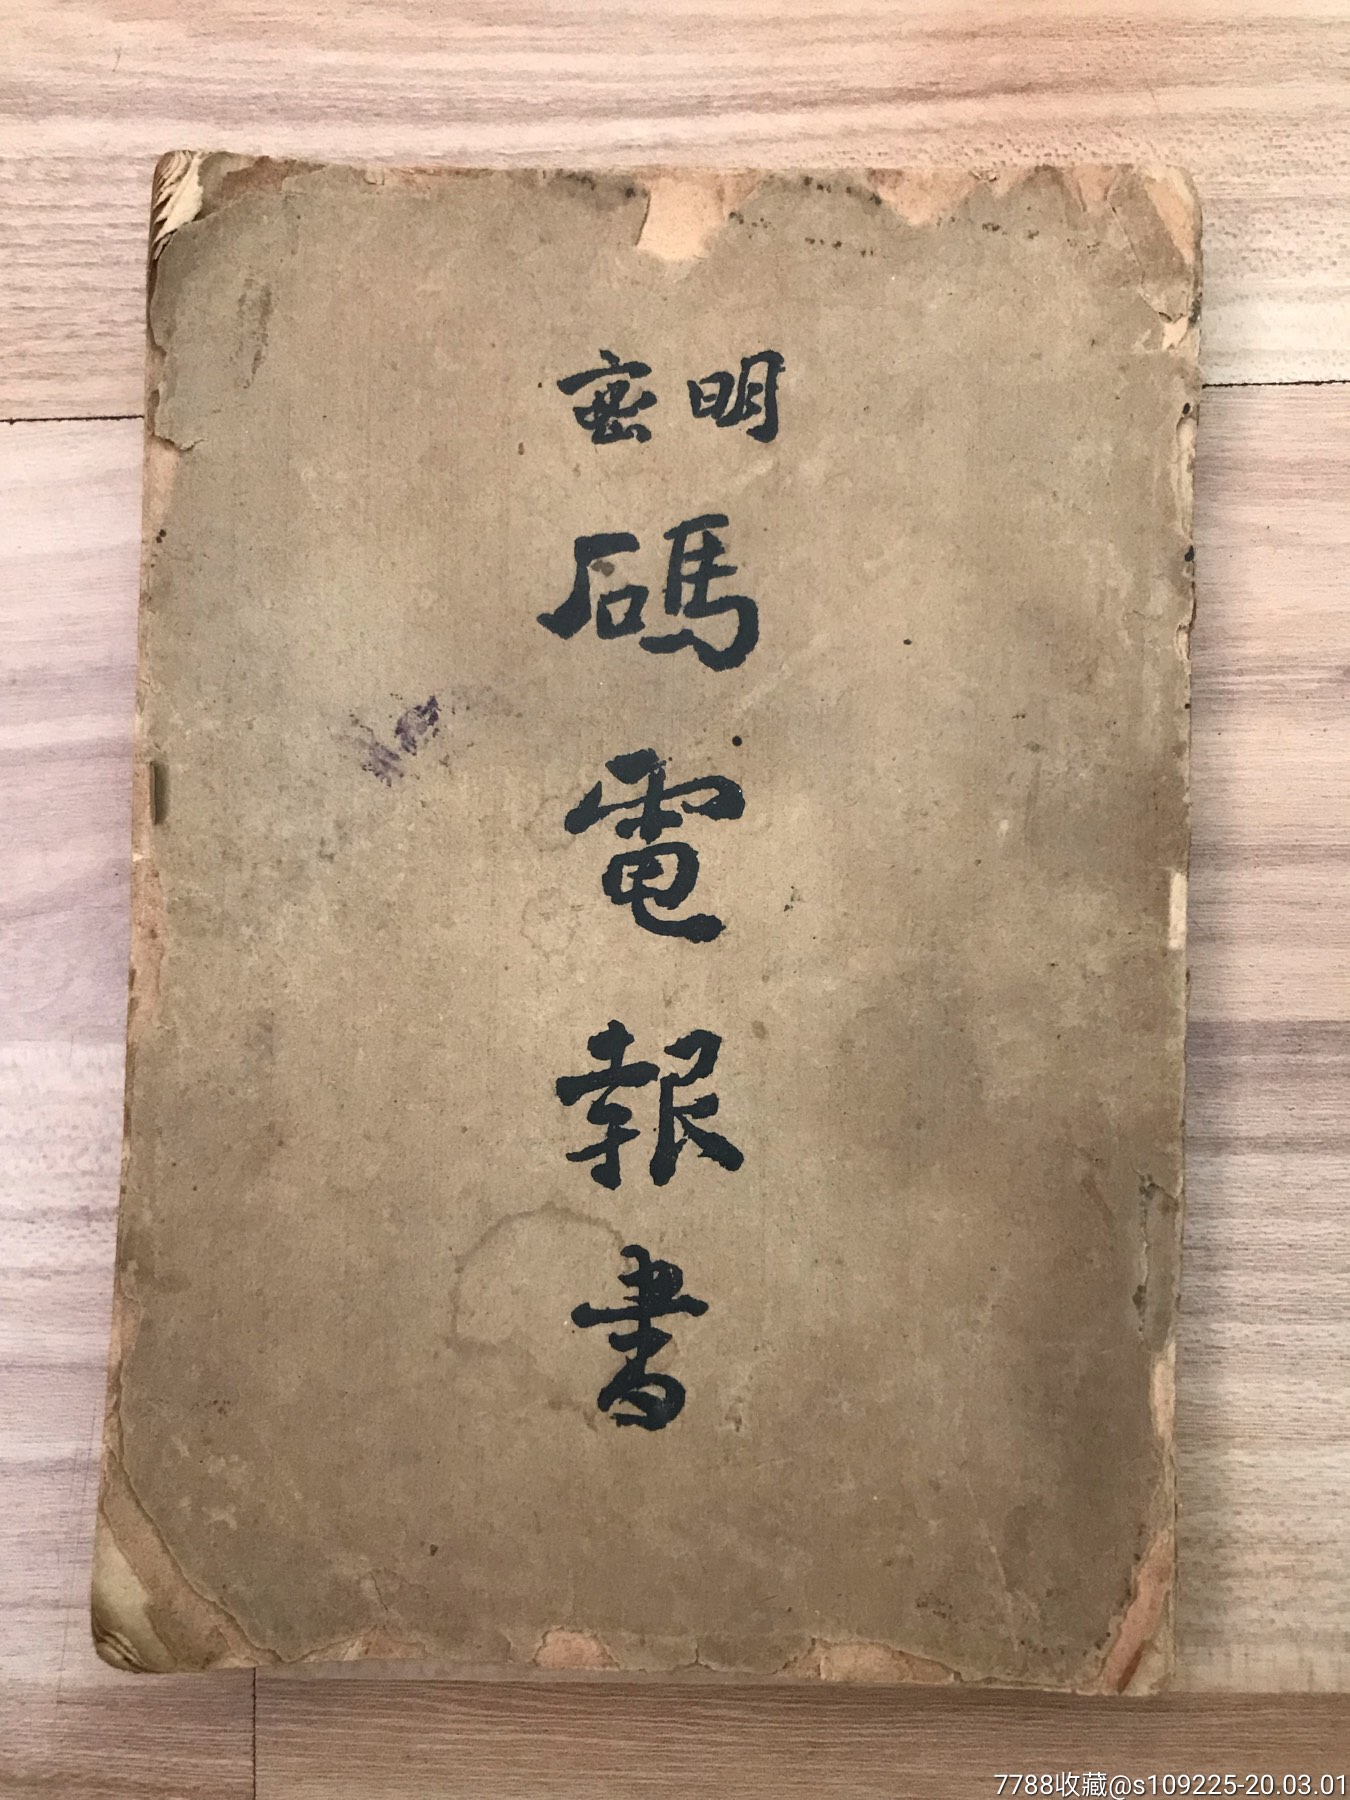 明密
碼電報書
7788收藏@s109225-20.03.01